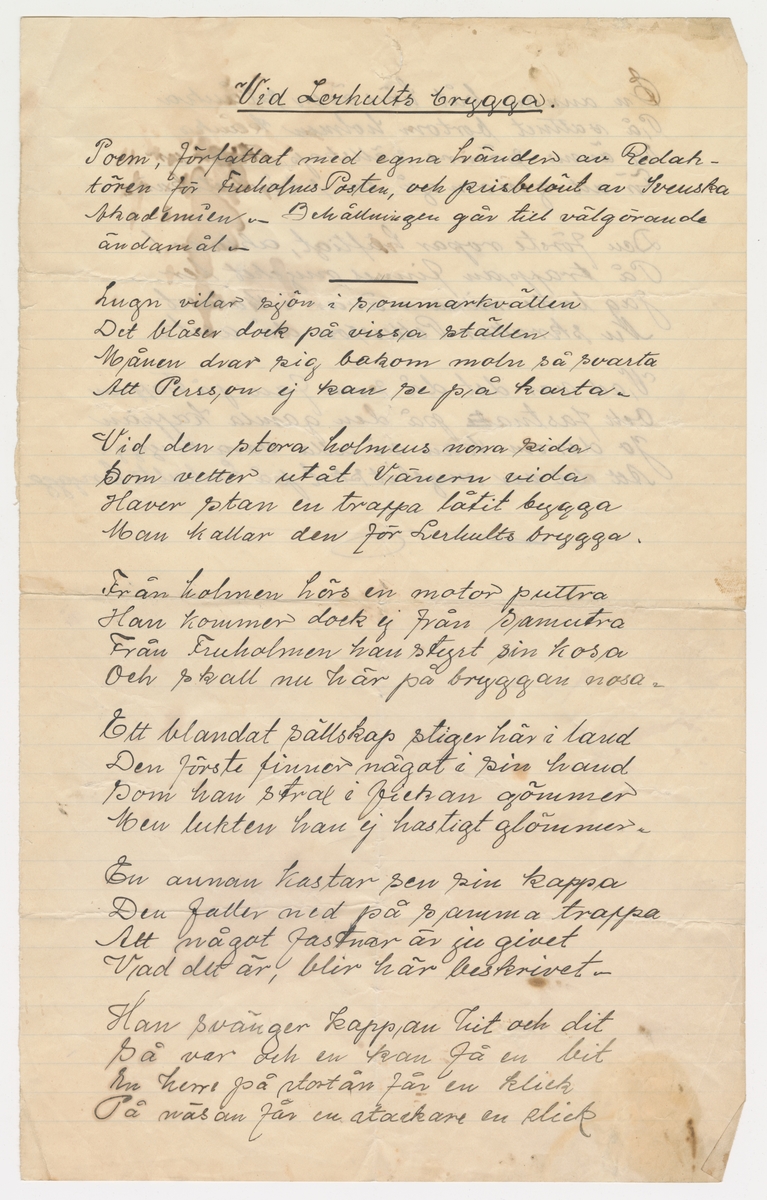 Vid Lerhults brygga.
Poem, författat med egna händer av Redak-
tören för FruholmsPosten, och prisbelönt av Svenska
Akademien. – Behållningen går till välgörande
ändamål. –
Lugn vilar sjön i sommarkvällen
Det blåser dock på vissa ställen
Månen drar sig bakom moln så svarta
Att Persson ej kan se på karta. –
Vid den stora holmens norra sida
Som vetter utåt Vänern vida
Haver stan en trappa låtit bygga
Man kallar den för Lerhults brygga.
Från holmen hörs en motor puttra
Han kommer dock ej från Samutra
Från Fruholmen han styrt sin kosa
Och skall nu här på bryggan nosa. –
Ett blandat sällskap stiger här i land
Den förste finner något i sin hand
Som han strax i fickan gömmer
Men lukten han ej hastigt glömmer. –
En annan kastar sen sin kappa
Den faller ned på samma trappa
Att något fastnar är ju givet
Vad det är, blir här beskrivet –
Han svänger kappan hit och dit
Så var och en kan få en bit
En herre på stortån får en klick
På näsan får en stackare en slick